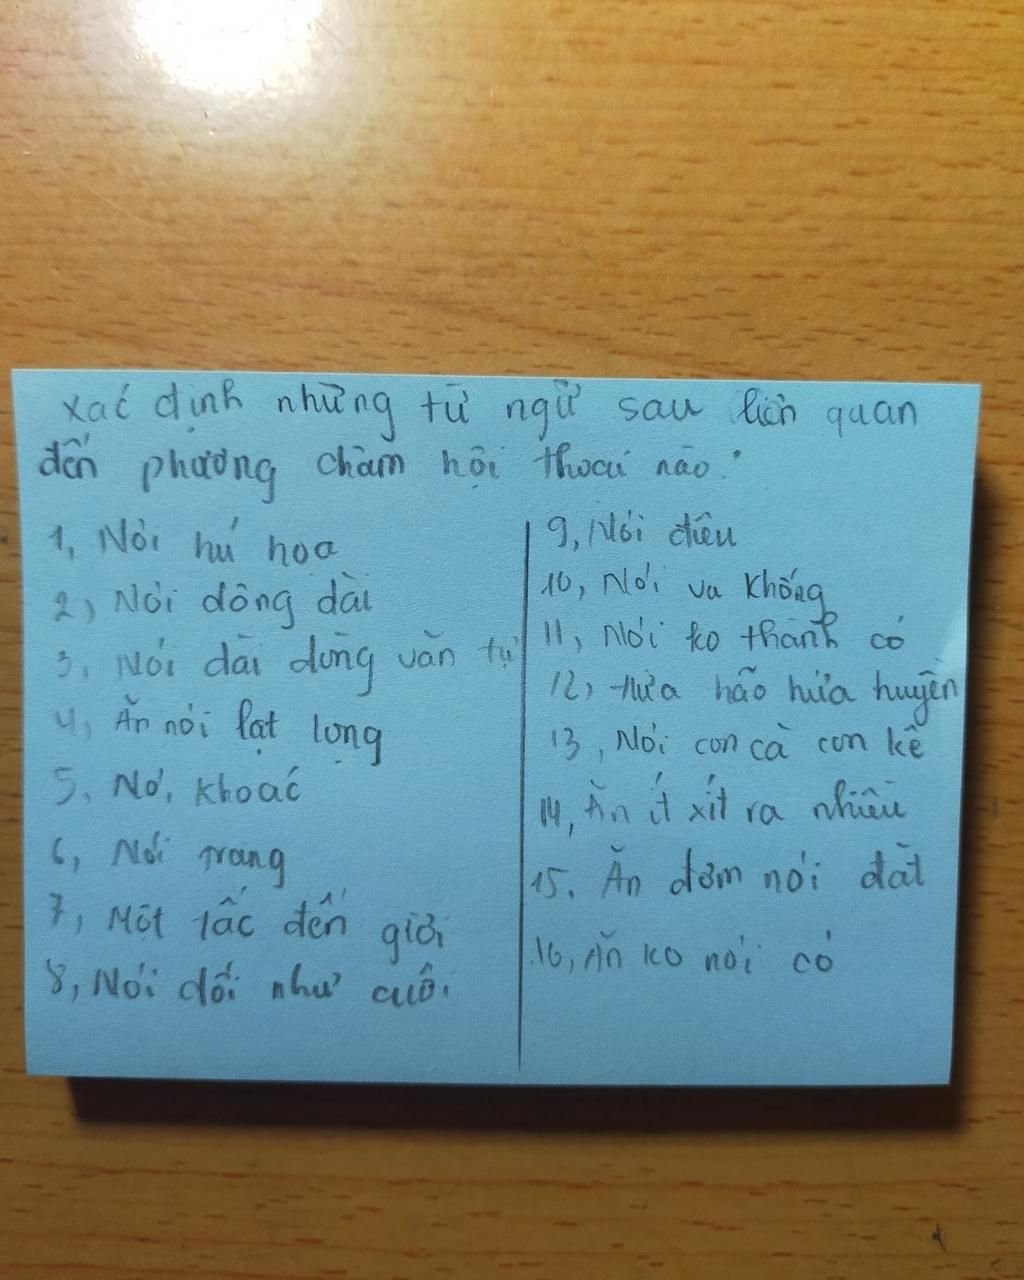 Xác định những từ ngữ sau liên quan
đến phương châm hội thoại nào?
1, Nói hú hoạ
2, Nói dông dài
3, Nói dài dòng văn tự
4, Ăn nói lạt lọng
5, Nói khoác
6, Nói trạng
7, Một tấc đến giời
8, Nói dối như cuội
9, Nói điêu
10, Nói vu khống
11, Nói ko thành có
12, Hứa hão hứa huyền
13, Nói con cà con kê
14, Ăn ít xít ra nhiều
15. Ăn đơm nói đặt
16, Ăn ko nói có